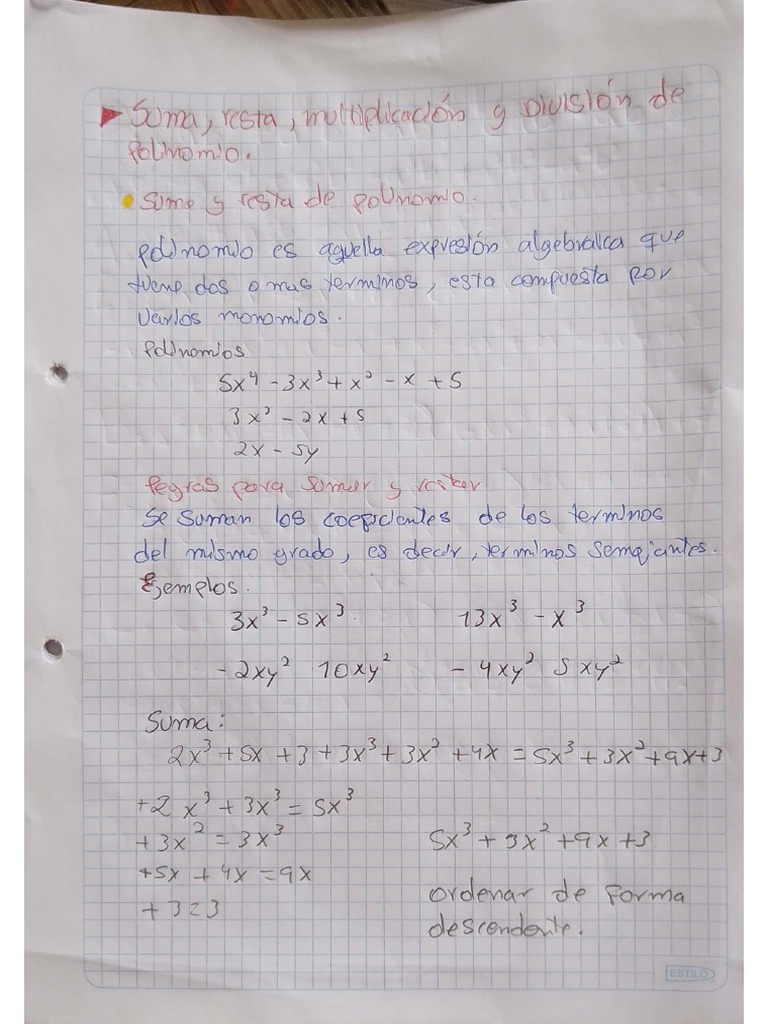 Suma, resta, multiplicación y División de
Polinomio.
Suma y resta de polinomio.
polinomio es aquella expresión algebraica que
tiene dos o mas terminos, esta compuesta por
varios monomios.
Polinomios
5x⁴ - 3x³ + x² - x + 5
3x³ - 2x + 5
2x - 5y
Regras para sumar y restar
Se suman los coeficientes de los terminos
del mismo grado, es decir, terminos semejantes.
Ejemplos.
3x³ - 5x³. 13x³ - x³
- 2xy² 10xy² - 4xy² 5xy²
Suma:
2x³ + 5x + 3 + 3x³ + 3x² + 4x = 5x³ + 3x² + 9x + 3
+2 x³ + 3x³ = 5x³
+ 3x² = 3x³ 5x³ + 3x² + 9x + 3
+5x + 4x = 9x
+ 3 = 3
ordenar de forma
descendente.
ESTILO